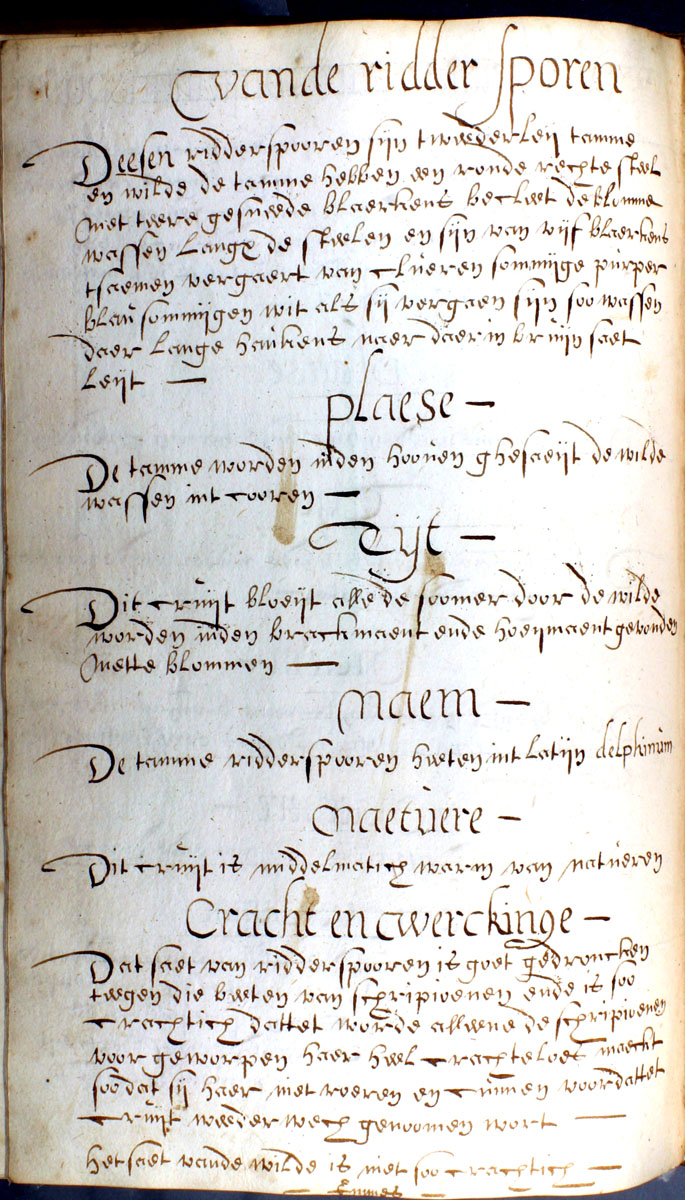 vande ridder sporen
Deesen ridderspooren sijn tweederleij tamme
en wilde de tamme hebben een ronde rechte steel
met teere gesneede blaerkens becleet de blomme
wassen langx de steelen en sijn van vijf blaerkens
tsaemen vergaert van clueren sommijge purper
blau sommijgen wit als sij vergaen sijn soo wassen
daer lange haukens naer daer in bruijn saet
leijt —
plaese —
De tamme worden inden hooven ghesaeijt de wilde
wassen int cooren —
Tijt —
Dit cruijt bloeijt alle de soomer door de wilde
worden inden brackmaent ende hoeijmaent gevonden
mette blommen —
Naem —
De tamme ridderspooren heeten int latijn delphinium
Naetuere —
Dit cruijt is middelmatich warm van natueren
Cracht en werckinge —
Dat saet van ridderspooren is goet gedroncken
teegen die beeten van schripioenen ende is soo
crachtich dattet worde alleene de schripioenen
voor geworpen haer heel crachteloos maeckt
soo dat sij haer niet roeren en cunnen voordattet
cruijt weeder wech genoomen wort —
het saet vande wilde is niet soo crachtich —